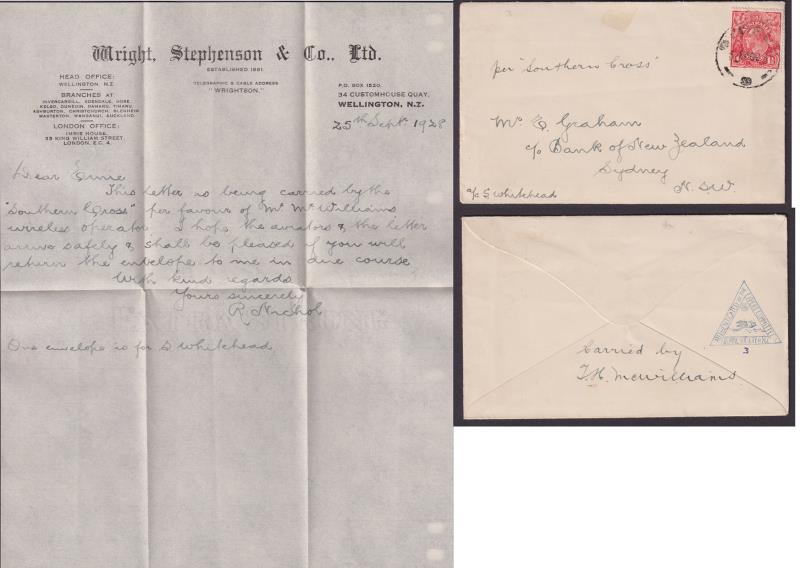 Wright, Stephenson & Co., Ltd.
ESTABLISHED 1861.
HEAD OFFICE:
WELLINGTON, N.Z.
BRANCHES AT
INVERCARGILL, EDENDALE, GORE,
KELSO, DUNEDIN, OAMARU, TIMARU,
ASHBURTON, CHRISTCHURCH, BLENHEIM
MASTERTON, WANGANUI, AUCKLAND.
LONDON OFFICE:
IMRIE HOUSE,
33 KING WILLIAM STREET,
LONDON, E.C. 4.
TELEGRAPHIC & CABLE ADDRESS
"WRIGHTSON."
P.O. BOX 1520,
34 CUSTOMHOUSE QUAY,
WELLINGTON, N.Z.
25th Sept 1928
Dear Ernie
This letter is being carried by the
"Southern Cross" per favour of Mr McWilliams
wireless operator. I hope the aviators & the letter
arrive safely & shall be pleased if you will
return the envelope to me in due course,
With kind regards
Yours sincerely
R. Nichol
One envelope is for S Whitehead
per "Southern Cross"
Mr E. Graham
c/o Bank of New Zealand
Sydney
N.S.W.
a/c S. Whitehead
3
Carried by
T.H. McWilliams